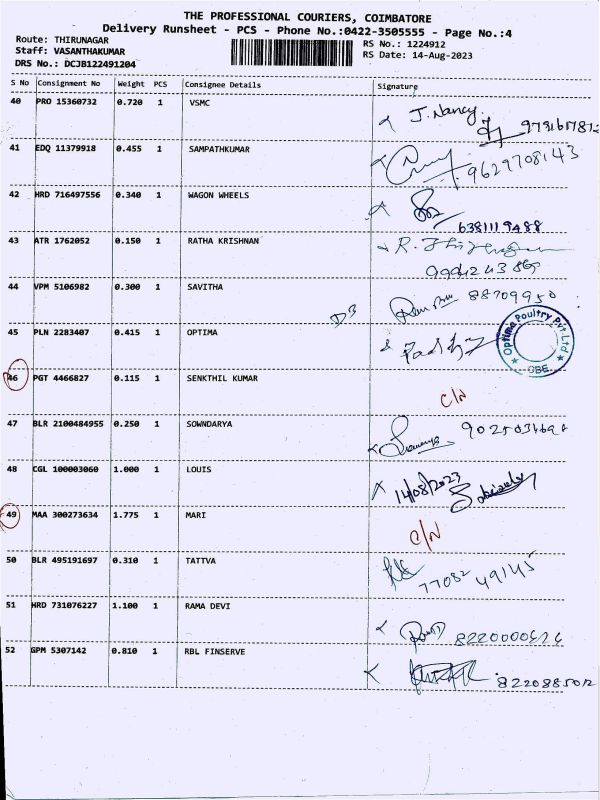 THE PROFESSIONAL COURIERS, COIMBATORE
Delivery Runsheet - PCS - Phone No.:0422-3505555 - Page No.:4
Route: THIRUNAGAR
RS No.: 1224912
Staff: VASANTHAKUMAR
RS Date: 14-Aug-2023
DRS No.: DCJB122491204
S No Consignment No Weight PCS Consignee Details Signature
40 PRO 15360732 0.720 1 VSMC
J. Nancy
41 EDQ 11379918 0.455 1 SAMPATHKUMAR
9629708143
42 HRD 716497556 0.340 1 WAGON WHEELS
6381119488
43 ATR 1762052 0.150 1 RATHA KRISHNAN
44 VPM 5106982 0.300 1 SAVITHA
88709950
45 PLN 2283407 0.415 1 OPTIMA
Optima Poultry Pvt. Ltd
CBE
46 PGT 4466827 0.115 1 SENKTHIL KUMAR
C/N
47 BLR 2100484955 0.250 1 SOWNDARYA
48 CGL 100003060 1.000 1 LOUIS
14/08/2023
49 MAA 300273634 1.775 1 MARI
C/N
50 BLR 495191697 0.310 1 TATTVA
77082 49145
51 HRD 731076227 1.100 1 RAMA DEVI
52 GPM 5307142 0.810 1 RBL FINSERVE
8220885012